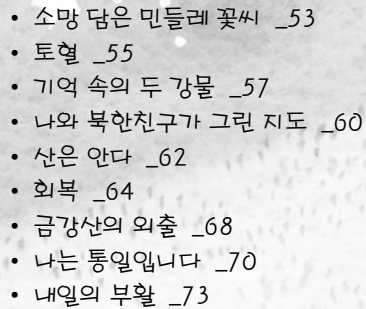 • 소망 담은 민들레 꽃씨 _53
• 토혈 _55
• 기억 속의 두 강물 _57
• 나와 북한친구가 그린 지도 _60
• 산은 안다 _62
• 회복 _64
• 금강산의 외출 _68
• 나는 통일입니다 _70
• 내일의 부활 _73